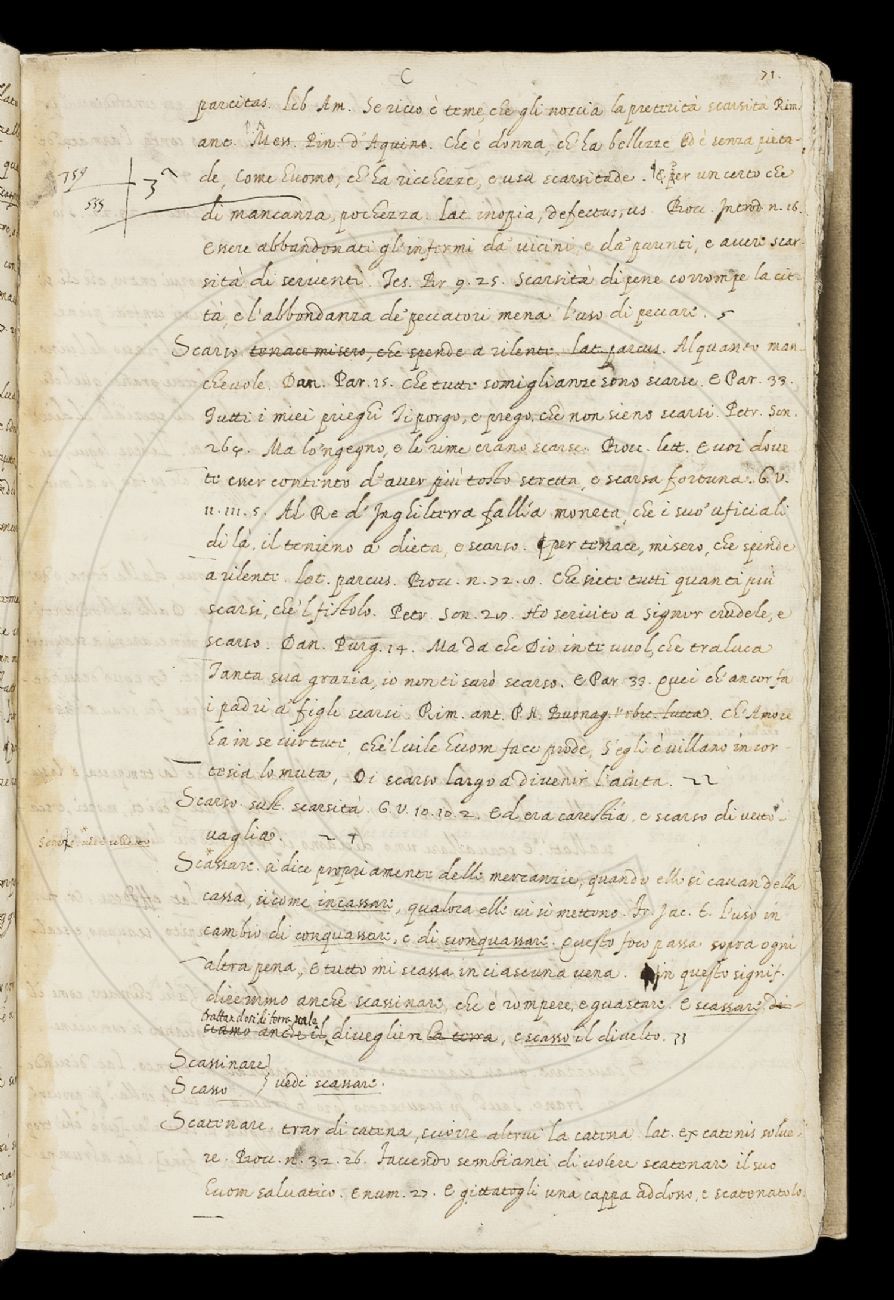 C
71.
parcitas. Lib Am. Se ricco è teme, che gli noccia la preterità scarsità Rim.
ant. Mess. Rin. d'Aquino. Che è donna, ch'ha bellezze Ed è senza pieta-
de, Come huomo, ch'ha ricchezze, e usa scarsitade. per un certo che
759
535
3ª
di mancanza, pochezza. lat. inopia, defectus, us. Bocc. Introd. n. 16.
Essere abbandonati gl'infermi da' vicini, e da' parenti, e avere scar-
sità di serventi. Tes. Br. 9. 25. Scarsità di pene corrompe la cit-
tà, e l'abbondanza de' peccatori mena l'uso di peccare. 5
Scarso tenace misero, che spende a rilento. lat. parcus. Alquanto man-
chevole. Dan. Par. 15. Che tutte somiglianze sono scarse. E Par. 33.
Tutti i miei prieghi Ti porgo, e prego, che non sieno scarsi. Petr. Son.
Ma lo 'ngegno, e le rime erano scarse. Bocc. lett. E voi dove
te esser contento d'aver più tosto stretta, e scarsa fortuna. G. V.
11. 111. 5. Al Re d'Inghilterra fallía moneta, che i suo' uficiali
di là, il tenieno a dieta, e scarso. per tenace, misero, che spende
a rilente. Lat. parcus. Bocc. n. 72. Che siete tutti quanti più
scarsi, che 'l fistolo. Petr. Son. Ho servito a Signor crudele, e
scarso. Dan. Purg. 14. Ma da che Dio in te vuol, che traluca
Tanta sua grazia, io non ti sarò scarso. E Par. 33. Quei ch'ancor fa
i padri a' figli scarsi. Rim. ant. P. N. Buonag. Urbic. Lucca. Ch'Amore
ha in se vertute, che 'l vile huom face prode, S'egli è villano in cor-
tesia lo muta, Di scarso largo a divenir l'aiuta. 22
Scarso. sust. scarsità. G. V. 10. 10. 2. Ed era carestía, e scarso di vetto-
vaglia.
Scassare. si dice propriamente delle mercanzie, quando elle si cavan della
cassa, siccome incassare, qualora elle vi si mettono. Fr. Jac. T. l'usò in
cambio di conquassare, e di sconquassare. Questo foco passa sopra ogni
altra pena, E tutto mi scassa in ciascuna vena. in questo signif.
diremmo anche scassinare, che è rompere, e guastare. E scassare di-
trattandosi di terra, vale
ciamo anche il divegliere la terra, e scasso il divelto. 33
Scassinare
Scasso } vedi scassare.
Scatenare. trar di catena, sciorre altrui la catena. lat. ex catenis solve-
re. Bocc. n. 32. 26. Facendo sembianti di volere scatenare il suo
huom salvatico. E num. 27. E gittatogli una cappa addosso, e scatenatolo.